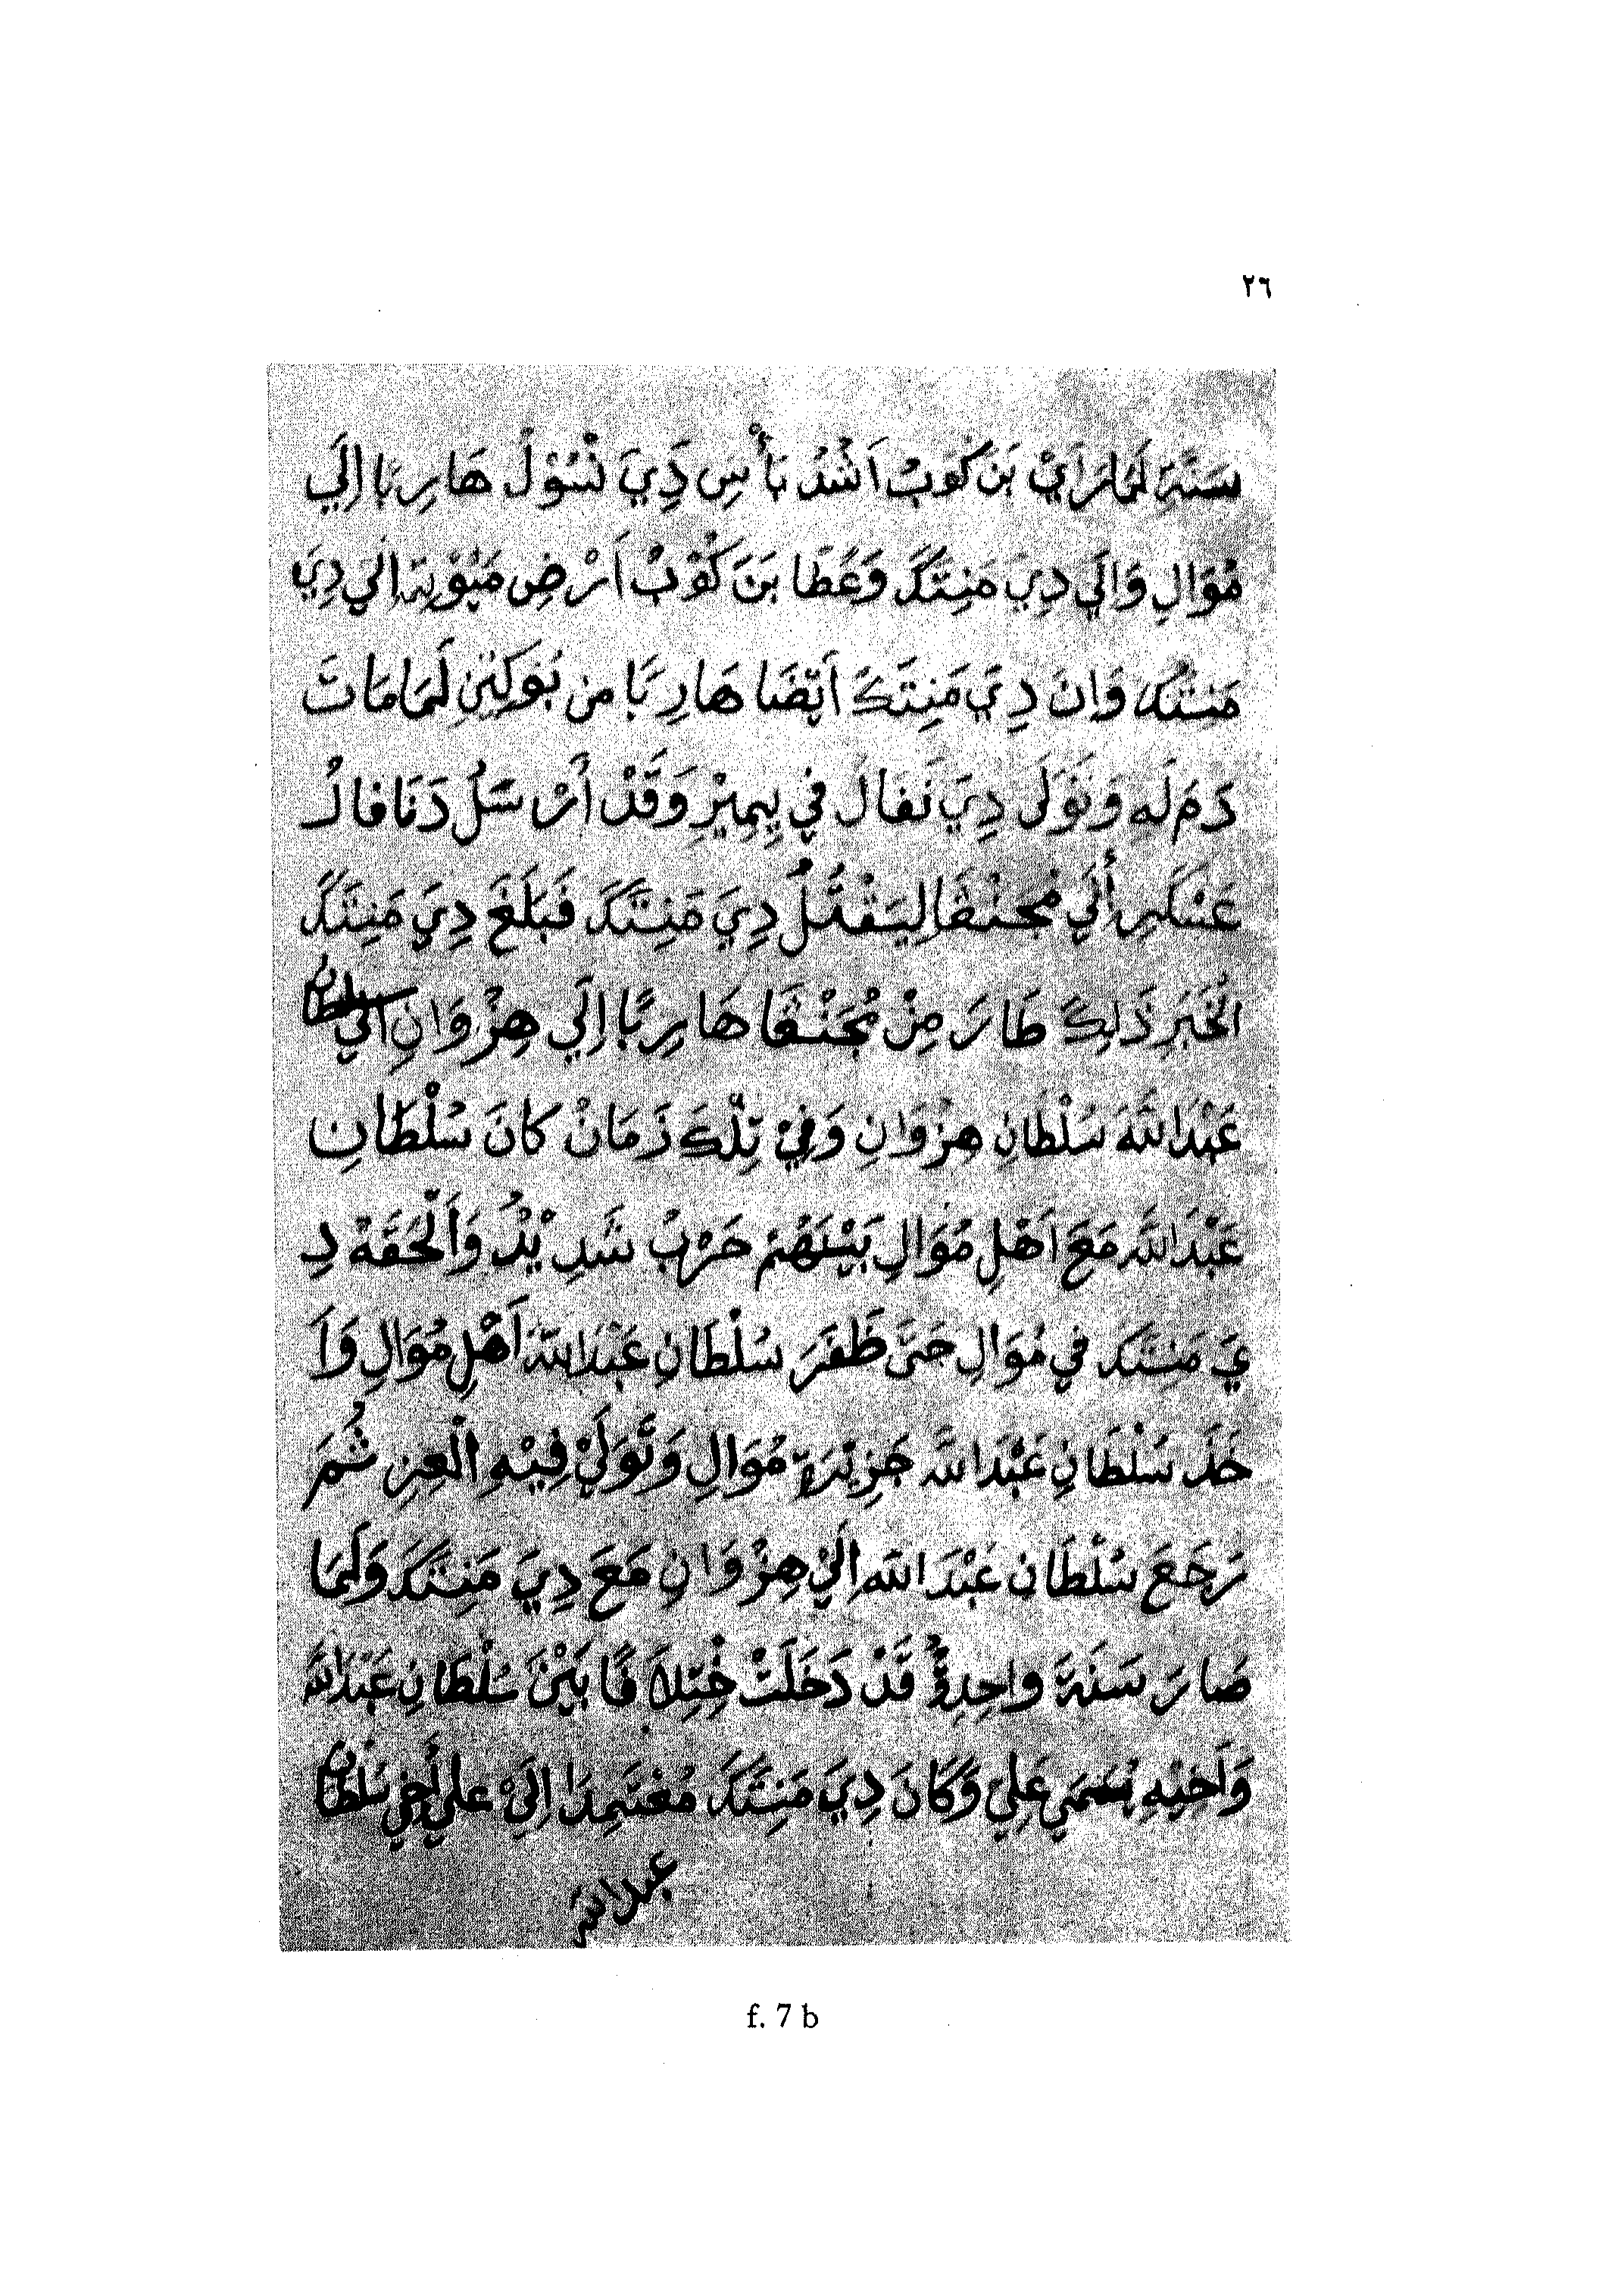 ٢٦
سَنَةِ لَمَارَاَيْ بَنَ كَوَبُ اَشْدُ بَأْسِ دِيَ نْسُوْلْ هَارِبًا اِلَي
مُوَالِ وَاِلَي دِيَ مَنِتَكَ وَعَطَا بَنَ كُوْبُ اَرْضِ مَيُوْتَه اِلَي دِيَ
مَنِتَكَ وَاِنَ دِيَ مَنِتَكَ اَيْضَا هَارِبًا من بُوَكِنِ لَمَامَاتَ
دَمَ لَهِ وَتَوَلَى دِيَ نَفَالَ في بِمِيْزِ وَقَدْ أَرْسَلُ دَنَافَالُ
عَسْكَرِ أِلَي مُجَنْقَا لِيَقْتُلُ دِيَ مَنِتَكَ فَبَلَغَ دِيَ مَنِتَكَ
الْخَبَرِ ذَلِكَ طَارَ مِنْ مُجَنْقَا هَارِبًا اِلَي هِزْوَانِ اِلَي سلطان
عَبْدَاللَّهَ سُلْطَانِ هِزْوَانِ وَفِيْ تِلْكَ زَمَانُ كَانَ سُلْطَانِ
عَبْدَاللَّه مَعَ اَهْلِ مُوَالِ بَيْنَهُمْ حَرْبُ شَدِيْدُ وَاَلْحَقَهُ دِ
يَ مَنِتَكَ فِي مُوَالِ حَتَى ظَفَرَ سُلْطَانِ عَبْدَاللَّهَ اَهْلِ مُوَالِ وَاَ
خَذَ سُلْطَانِ عَبْدَاللَّه جَزِيْرَةِ مُوَالِ وَتَوَلَيْ فِيْهِ الْعِزِ ثُمَ
رَجَعَ سُلْطَانِ عَبْدَ اللَّه اِلَيْ هِزْوَانِ مَعَ دِيَ مَنِتَكَ وَلَمَا
صَارَ سَنَةَ وَاحِدِةُ قَدْ دَخَلَتْ خْتِلَافًا بَيْنَ سُلْطَانِ عَبْدَاللَّه
وَاَخِيْهِ يُسَمَي عَلِيَ وَكَانَ دِيَ مَنِتَكَ مُعْتَمِدَا اِلَيْ عَلِي أَخِي سُلْطَان
عبد الله
f. 7 b